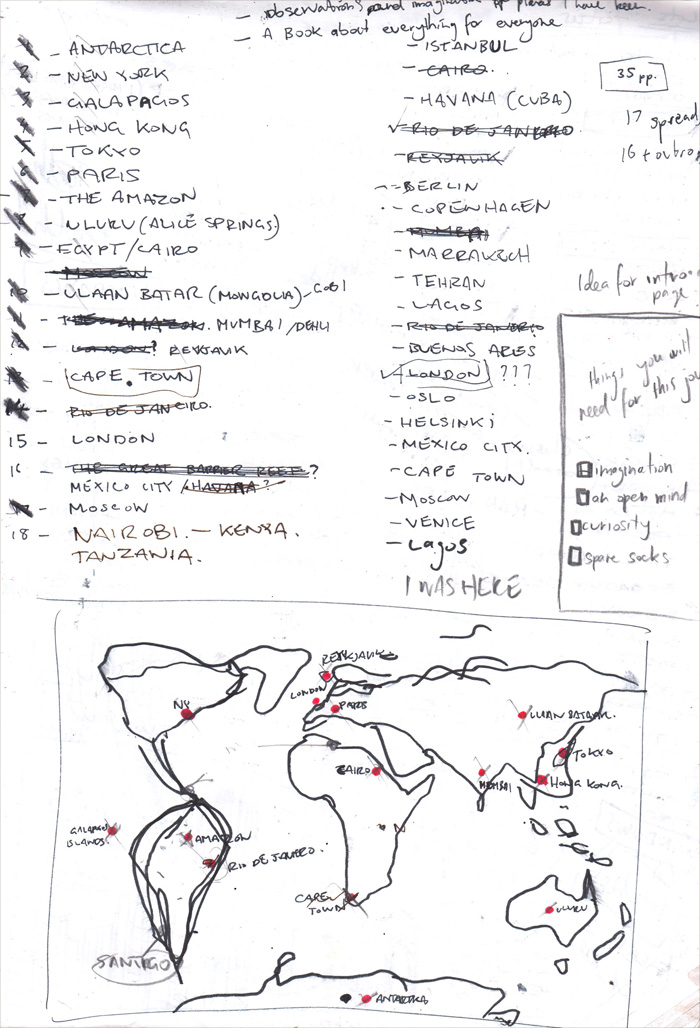 - observations and imagination of places I have been.
- A Book about everything for everyone
1 - ANTARCTICA
2 - NEW YORK
3 - GALAPAGOS
4 - HONG KONG
5 - TOKYO
6 - PARIS
- THE AMAZON
8 - ULURU (ALICE SPRINGS)
- EGYPT/CAIRO
MOSCOW
- ULAAN BATAR (MONGOLIA) - GOBI
- THE AMAZON. MUMBAI/DEHLI
- LONDON? REYKJAVIK
- CAPE TOWN
14 - RIO DE JANEIRO.
15 - LONDON
16 - THE GREAT BARRIER REEF?
MEXICO CITY /HAVANA?
- MOSCOW
18 - NAIROBI. - KENYA.
TANZANIA.
- ISTANBUL
- CAIRO.
- HAVANA (CUBA)
- RIO DE JANEIRO
- REYJAVIK
- BERLIN
- COPENHAGEN
- MUMBAI
- MARRAKECH
- TEHRAN
- LAGOS
- RIO DE JANEIRO
- BUENOS ARES
- LONDON ???
- OSLO
- HELSINKI
- MEXICO CITY.
- CAPE TOWN
- MOSCOW
- VENICE
- Lagos
I WAS HERE
35 pp.
17 spread
16 + outro
Idea for intro
page
things you will
need for this jou
imagination
an open mind
curiosity
spare socks
REYKJAVIK
LONDON
PARIS
NY
ULAAN BATAAR.
TOKYO
CAIRO
MUMBAI
HONG KONG.
GALAPAGOS
ISLANDS.
AMAZON
N
RIO DE JANERO.
CAPE
TOWN
ULURU
SANTIAGO
ANTARTICA